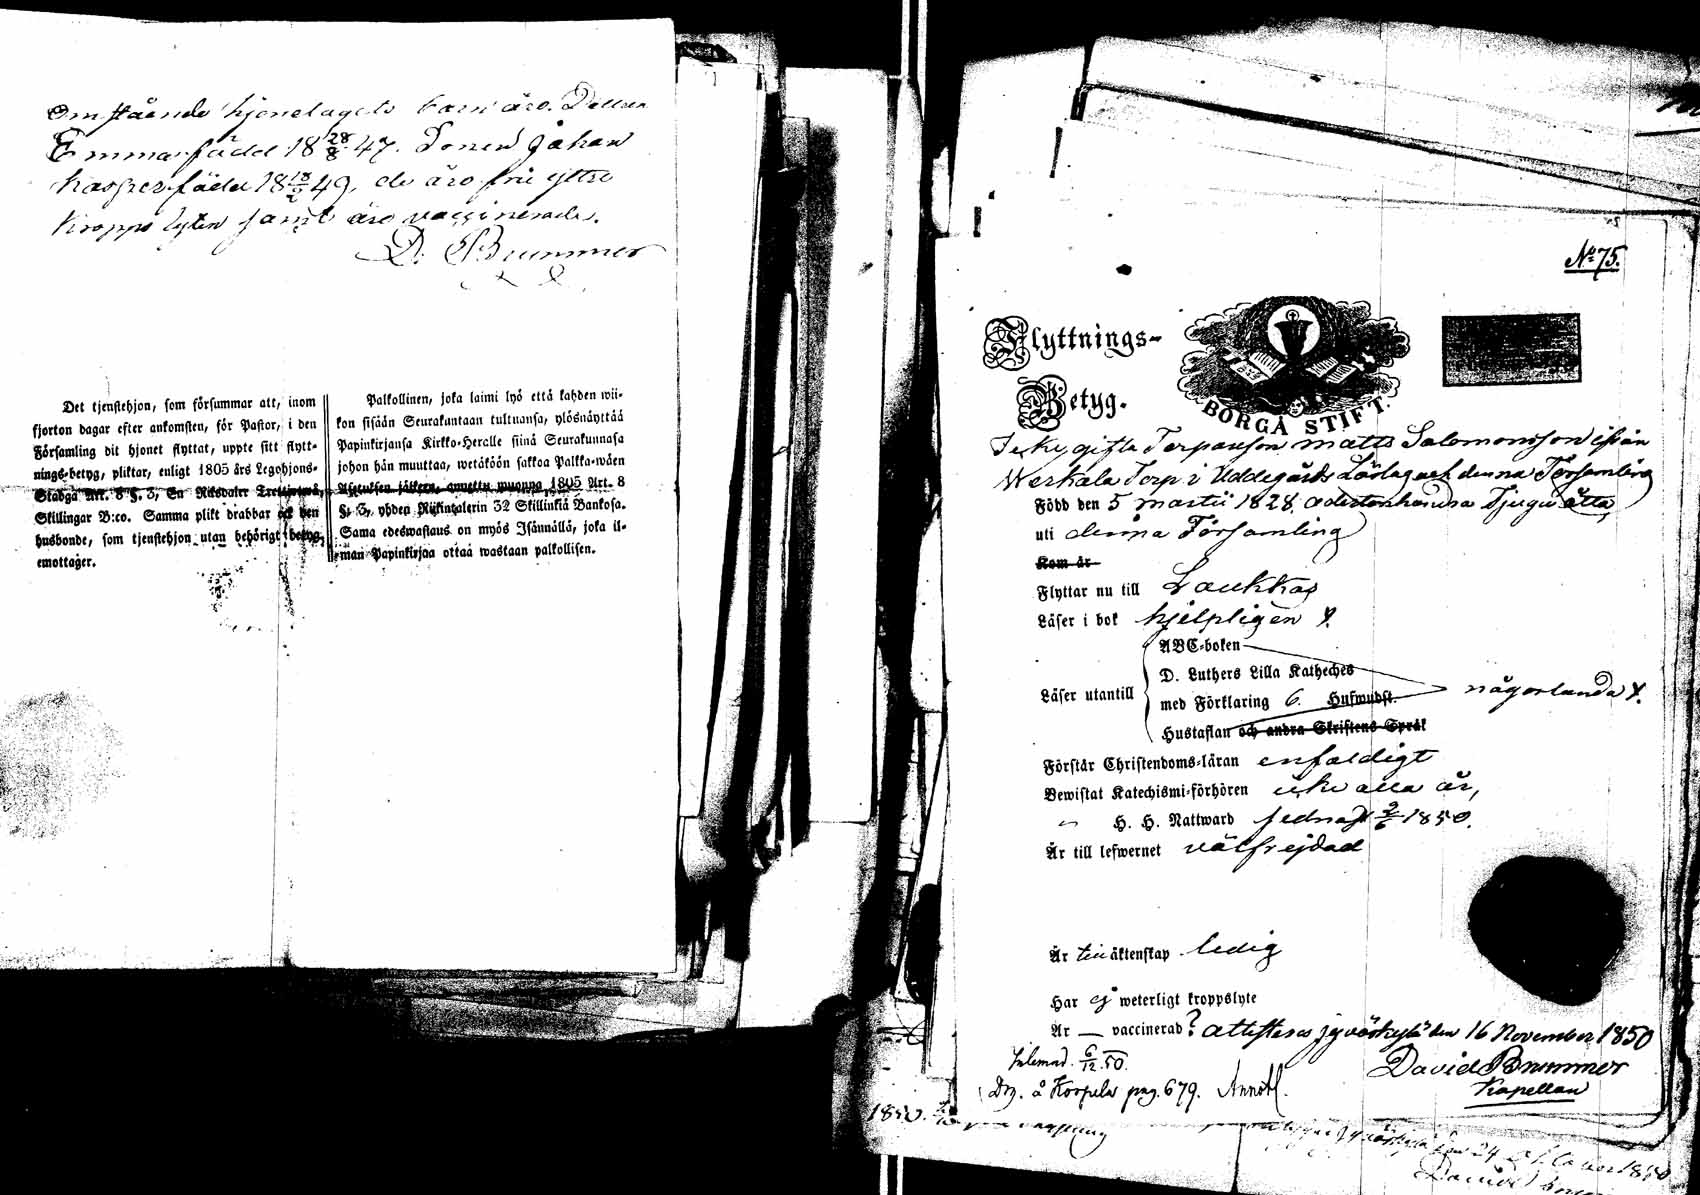 Omstående hjonelagets barn äro. Dottren
Emma född 18 28/8 47. Sonen Johan
Kasper född 18 18/2 49, de äro frie yttre
Kropps lyten samt äro vaccinerade.
D. Brummer
Det tjenstehjon, som försummar att, inom
fjorton dagar efter ankomsten, för Pastor, i den
Församling dit hjonet flyttat, uppte sitt flytt-
nings-betyg, pliktar, enligt 1805 års Legohjons-
Stadga Art. 8 §. 3, En Riksdaler Trettiotvå
Skillingar B:co. Samma plikt drabbar ock den
husbonde, som tjenstehjon utan behörigt betyg,
emottager.
Palkollinen, joka laimi lyö että kahden wii-
kon sisään Seurakuntaan tultuansa, ylösnäyttää
Papinkirjansa Kirkko-Herralle siinä Seurakunnasa
johon hän muuttaa, wetäköön sakkoa Palkka-wäen
Asetuksen jälkeen, annettu wuonna 1805 Art. 8
§. 3, yhden Riikintalerin 32 Skillinkiä Bankosa.
Sama edeswastaus on myös Isännällä, joka il-
man Papinkirjaa ottaa wastaan palkollisen.
No 75.
Flyttnings-
Betyg.
BORGÅ STIFT.
gifta Torparson Matts Salomonsson ifrån
Werkala Torp i Uddegårds Lärlag och denna Församling
Född den 5 martii 1828 adertonhundra Tjugu åtta
uti denna Församling
Kom år
Flyttar nu till Laukkas
Läser i bok hjelpligen
ABC-boken
D. Luthers Lilla Katheches
Läser utantill
med Förklaring 6. Hufwudst.
någorlunda
Hustaflan och andra Skriftens Språk
Förstår Christendoms-läran enfaldigt
Bewistat Katechismi-förhören icke alla år,
" H. H. Nattward sednast 2/6 1850.
Är till lefwernet välfrejdad
Är till äktenskap ledig
Har ej weterligt kroppslyte
Är — vaccinerad? attesteras Jyväskylä den 16 November 1850
David Brummer
Kapellan
Inlemnad. 6/12 50.
å Korpela pag. 679.
1850.
Jyväskylä den 24 1850
David